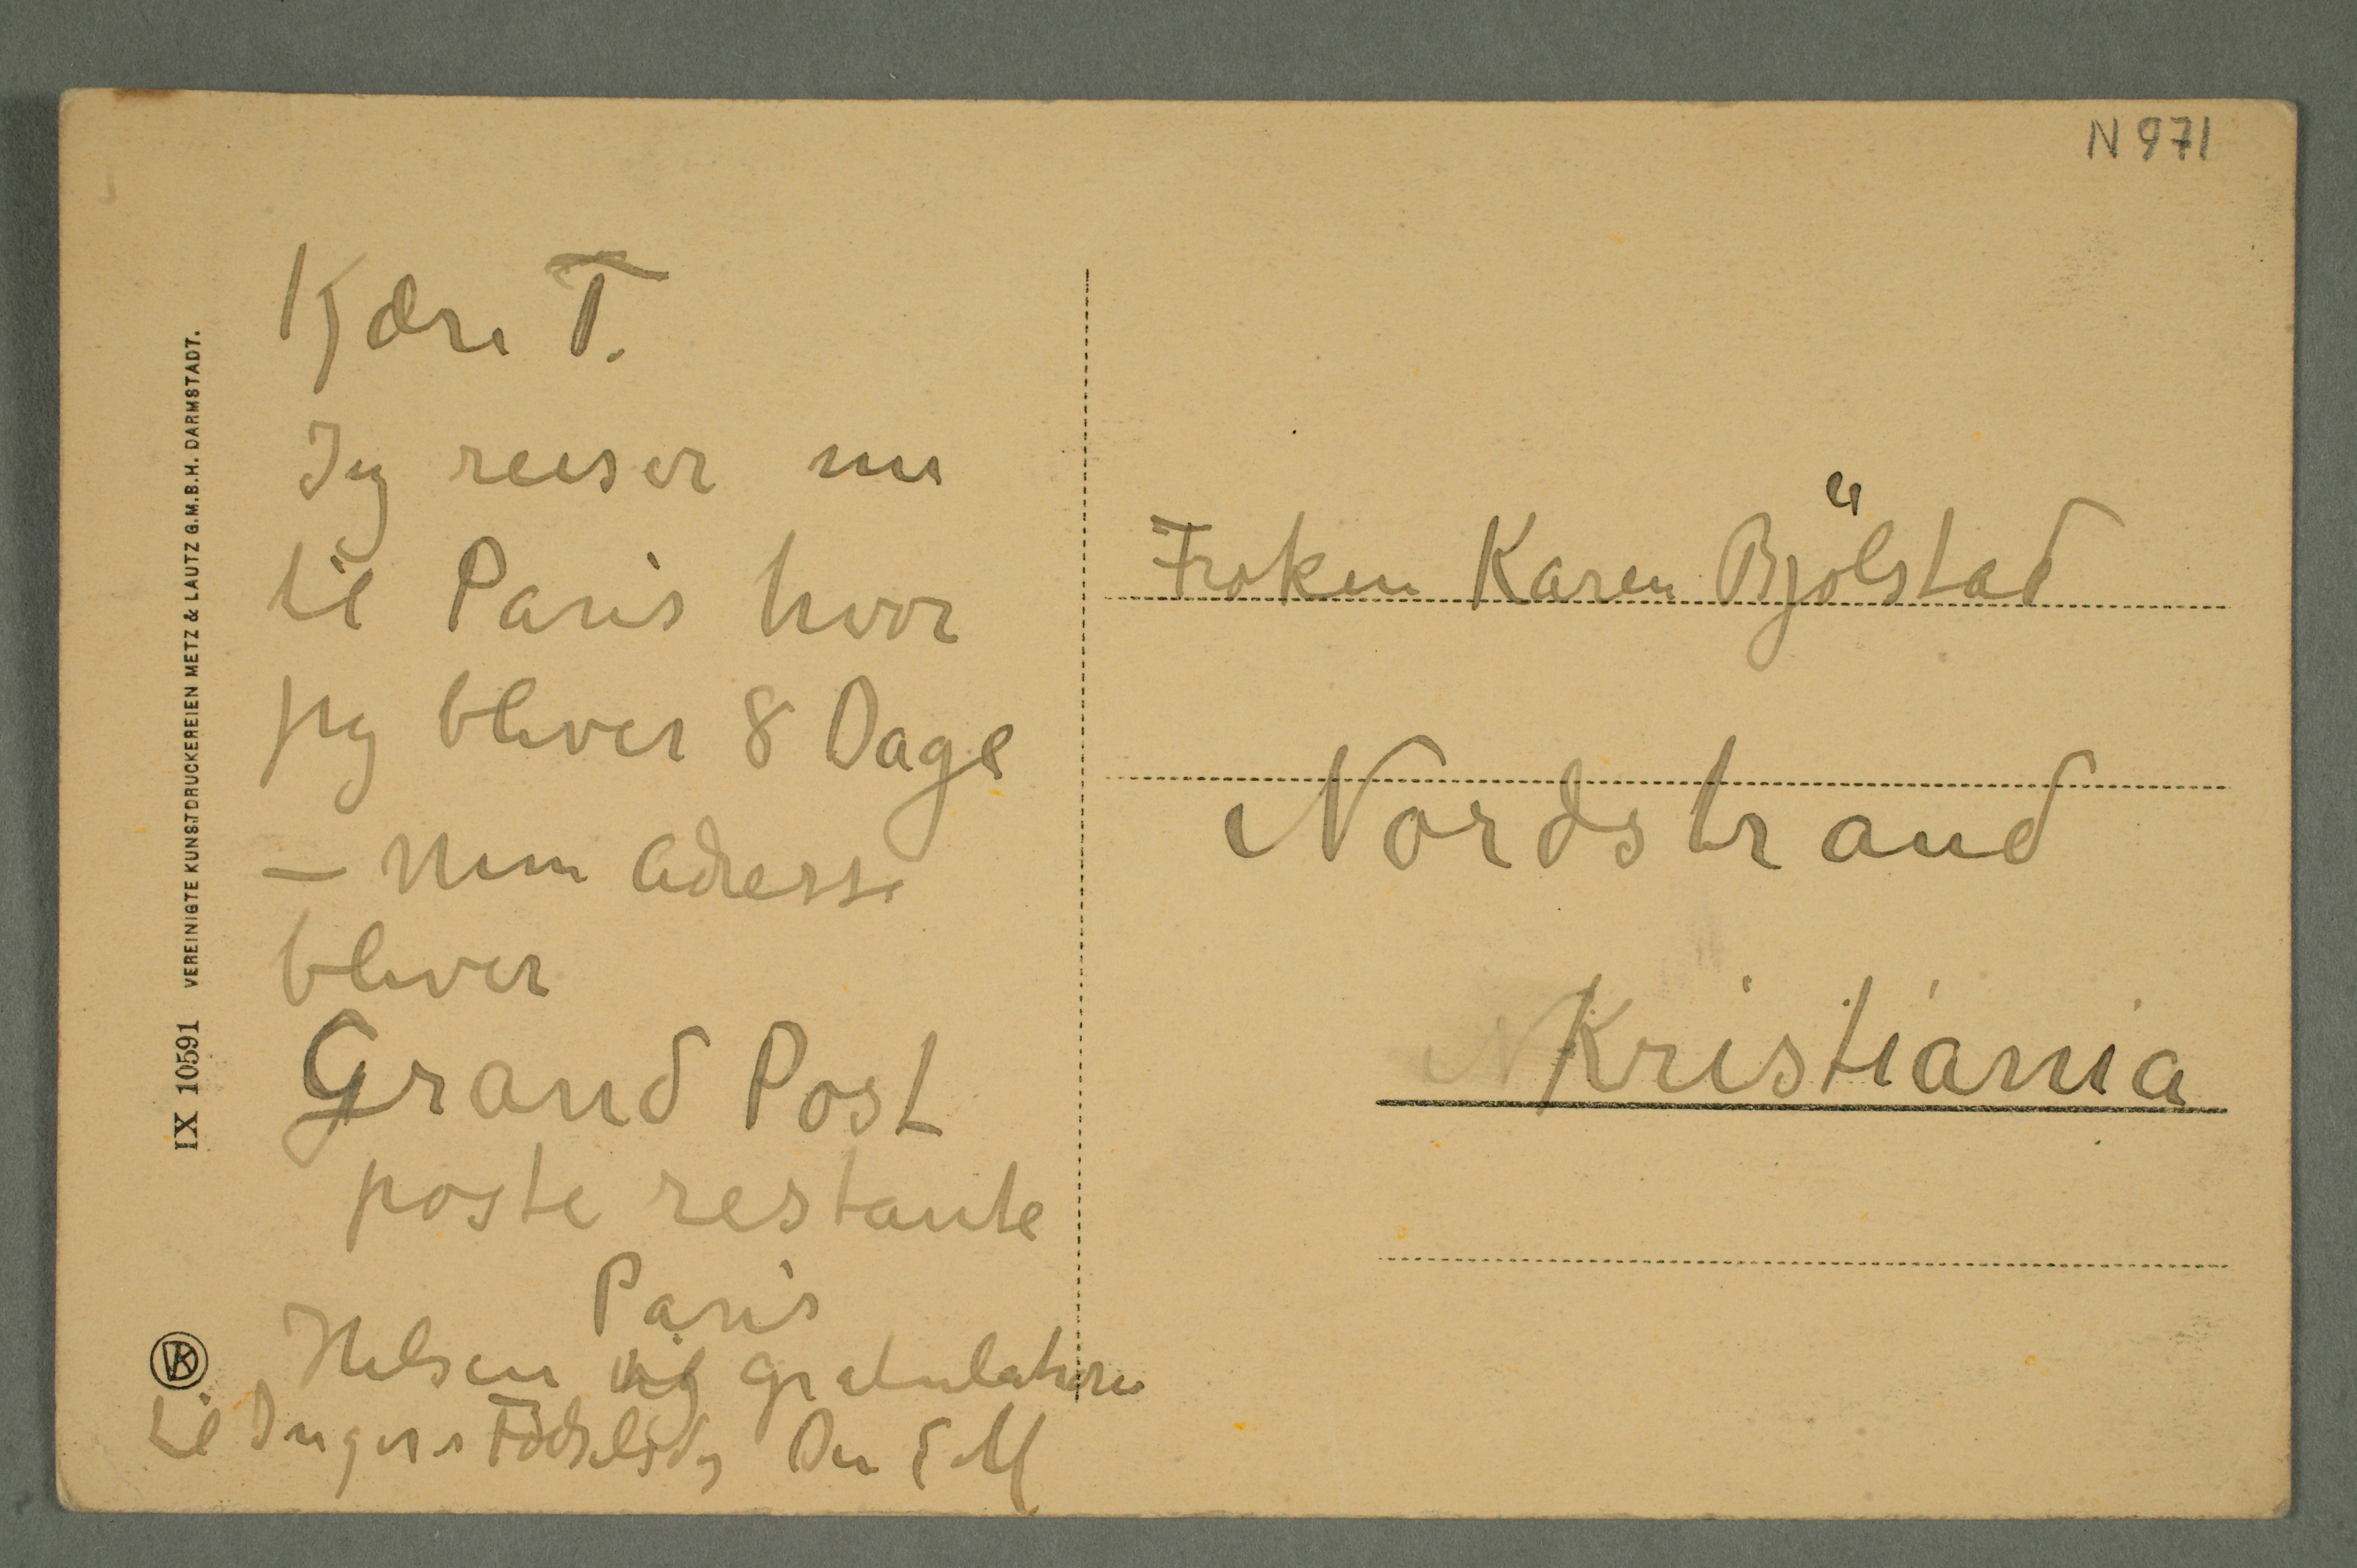 N 971
Kjære T.
Jeg reiser nu
til Paris hvor
jeg bliver 8 Dage
– Min Adresse
bliver
Grand Post
poste restante
Paris
Hilsen og gratulation
til Ingers Födselsdag Din E M
Froken Karen Bjölstad
Nordstrand
Kristiania
IX 10591 VEREINIGTE KUNSTDRUCKEREIEN METZ & LAUTZ G.M.B.H. DARMSTADT.